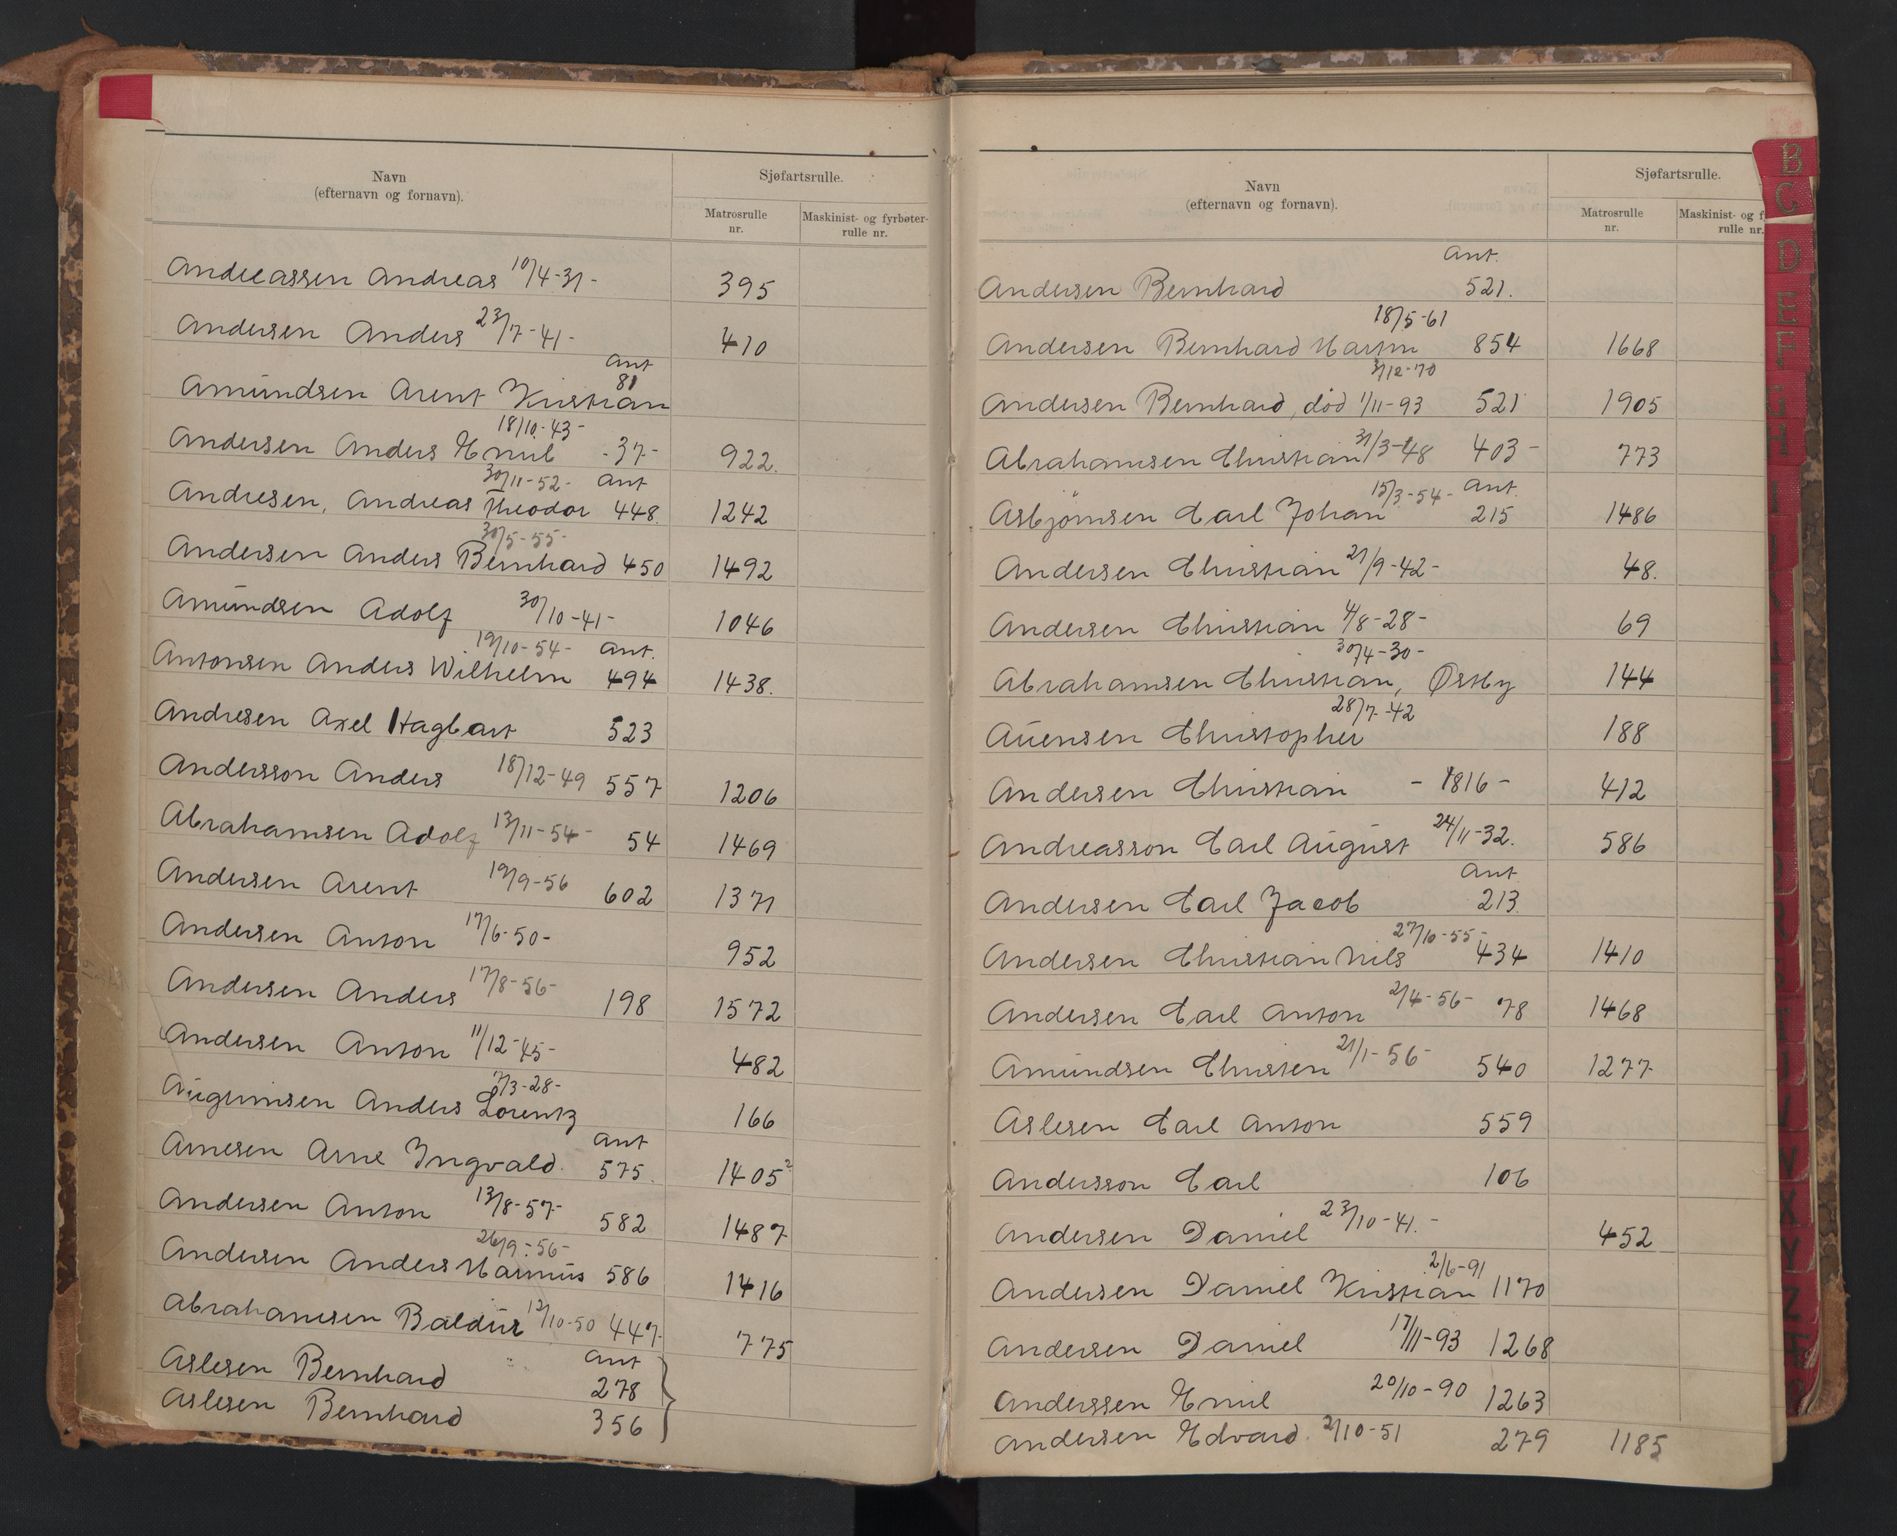 Navn
(efternavn og fornavn).
Sjøfartsrulle.
Matrosrulle
nr.
Maskinist- og fyrbøter-
rulle nr.
Andreassen Andreas 10/4-31- 395
Andersen Anders 23/7-41- 410
Ant
81
Amundsen Arent Kristian
18/10-43-
Andersen Anders Emil -37- 922.
30/11-52- Ant
Andresen, Andreas Theodor 448. 1242
30/5-55-
Andersen Anders Bernhard 450 1492
Amundsen Adolf 30/10-41- 1046
19/10-54- Ant.
Antonsen Anders Wilhelm 494 1438.
Andresen Axel Hagbart 523
Andersson Anders 18/12-49 557 1206
Abrahamsen Adolf 13/11-54- 54 1469
Andersen Arent 19/9-56 602 1371
Andersen Anton 17/6-50- 952
Andersen Anders 17/8-56- 198 1572
Andersen Anton 11/12-45- 482
7/3-28-
Augrimsen Anders Lorentz 166
Ant
Arnesen Arne Ingvald. 575. 1405?
Andersen Anton 13/8-57- 582 1487
26/9-56-
Andersen Anders Marinus 586 1416
Abrahamsen Baldur 12/10-50 447- 775
Ant
Aslesen Bernhard 278
Aslesen Bernhard 356
Navn
(efternavn og fornavn).
Sjøfartsrulle.
Matrosrulle
nr.
Maskinist- og f
rulle nr.
Ant.
Andersen Bernhard 521.
18/5-61
Andersen Bernhard 854 1668
3/12-70
Andersen Bernhard, død 1/11-93 521 1905
Abrahamsen Christian 31/3-48 403- 773
15/3-54- Ant.
Asbjørnsen Carl Johan 215 1486
Andersen Christian 21/9-42- 48.
Andersen Christian 4/8-28- 69
30/4-30-
Abrahamsen Christian, Østby 144
28/7-42
Auensen Christopher 188
Andersen Christian -1816- 412
Andreasson Carl August 24/11-32. 586
Ant
Andersen Carl Jacob 213.
27/10-55-
Andersen Christian Nils 434 1410
Andersen Carl Anton 2/4-56- 78 1468
Amundsen Christen 21/1-56- 540 1277
Aslesen Carl Anton 559
Andersson Carl 106
Andersen Daniel 23/10-41.- 452
2/6-91
Andersen Daniel Kristian 1170
Andersen Daniel 17/11-93 1268
Anderssen Emil 20/10-90 1263
Andersen Edvard. 2/10-51 279 1185
B
C
D
E
F
G
H
V
X
Y
Z